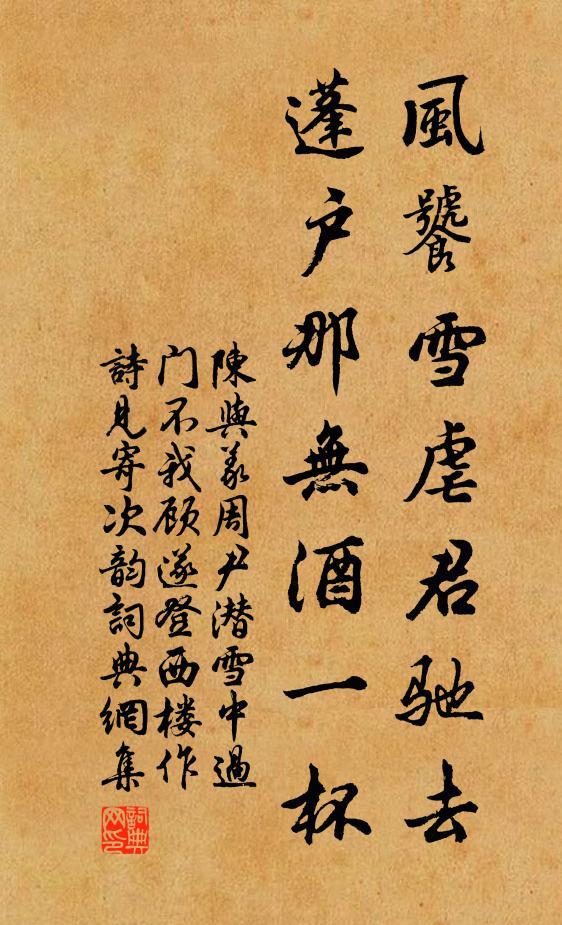 風饕雪虐君馳去
蓬户那無酒一杯
陳與義周尹潜雪中過
门不我顾遂登西楼作
詩見寄次韵詞典網集
詞典网印